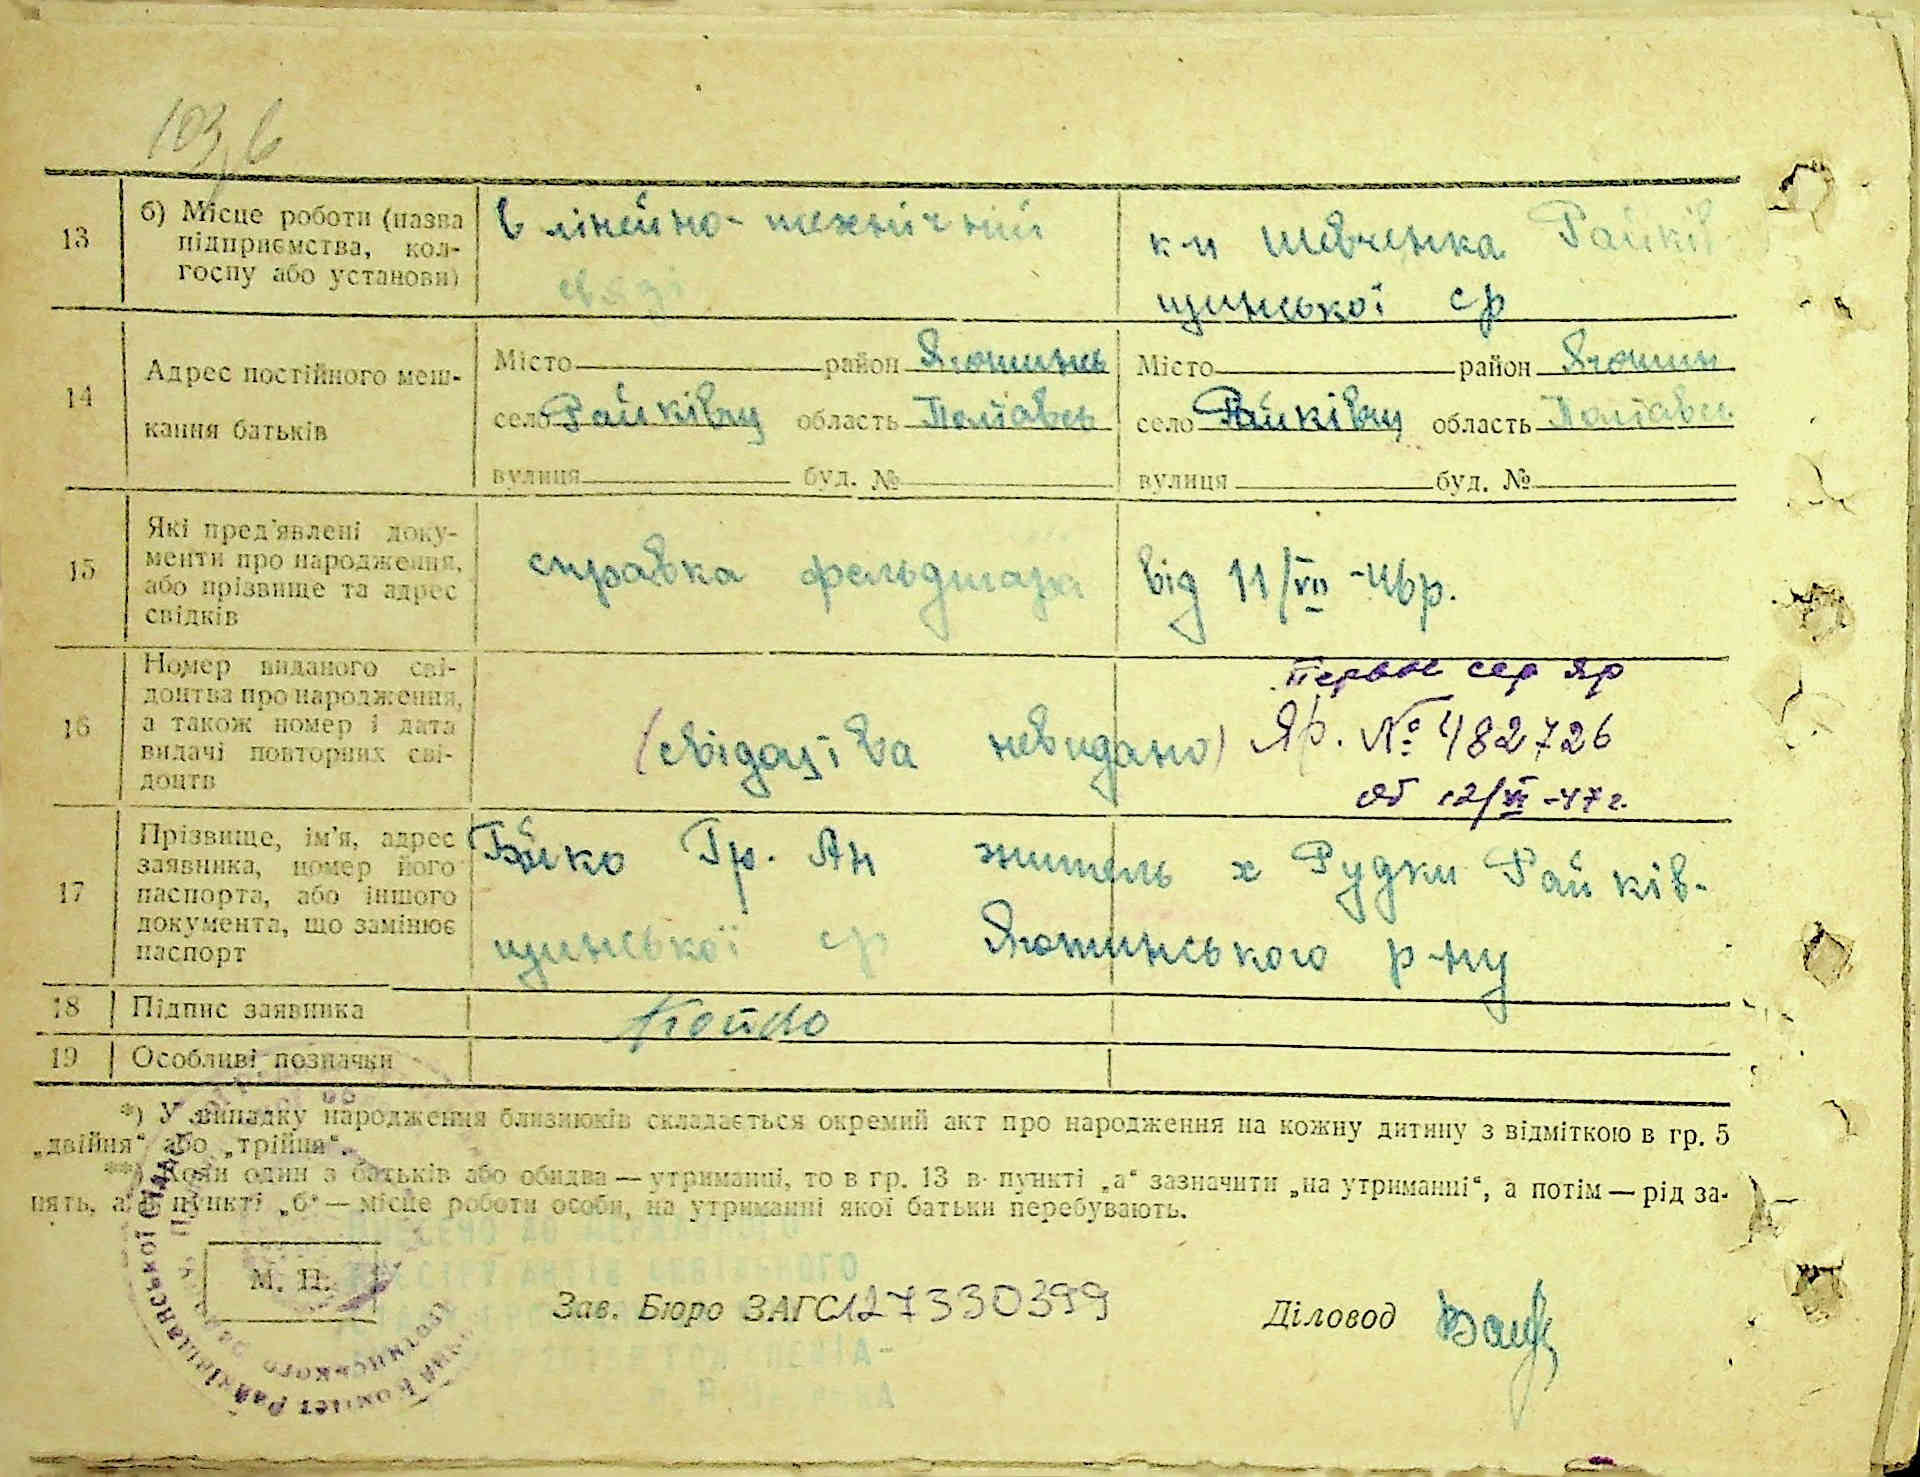 103 б
13 б) Місце роботи (назва підприємства, колгоспу або установи)
в лінейно-технічній
связі
к-п Шевченка Райків-
щинської ср
14 Адрес постійного меш-
кання батьків
Місто район Яготинсь
село Райківщ область Полтавсь
вулиця буд. №
Місто район Яготин
село Райківщ область Полтавсь
вулиця буд. №
15 Які пред'явлені доку-
менти про народження,
або прізвище та адрес
свідків
справка фельдшара від 11/VII-46р.
16 Номер виданого сві-
доцтва про народження,
а також номер і дата
видачі повторних сві-
доцтв
(свідоцтва невидано)
Первое сер Яр
Яр. № 482726
от 12/VI-47г.
17 Прізвище, ім'я, адрес
заявника, номер його
паспорта, або іншого
документа, що замінює
паспорт
Бойко Гр. Ан житель х Рудки Райків-
щинської ср Яготинського р-ну
18 Підпис заявника
19 Особливі позначки
*) У випадку народження близнюків складається окремий акт про народження на кожну дитину з відміткою в гр. 5
„двійня“ або „трійня“.
**) Коли один з батьків або обидва — утриманці, то в гр. 13 в пункті „а“ зазначити „на утриманні“, а потім — рід за-
нять, а в пункті „б“ — місце роботи особи, на утриманні якої батьки перебувають.
М. П.
Зав. Бюро ЗАГС 127330399
Діловод